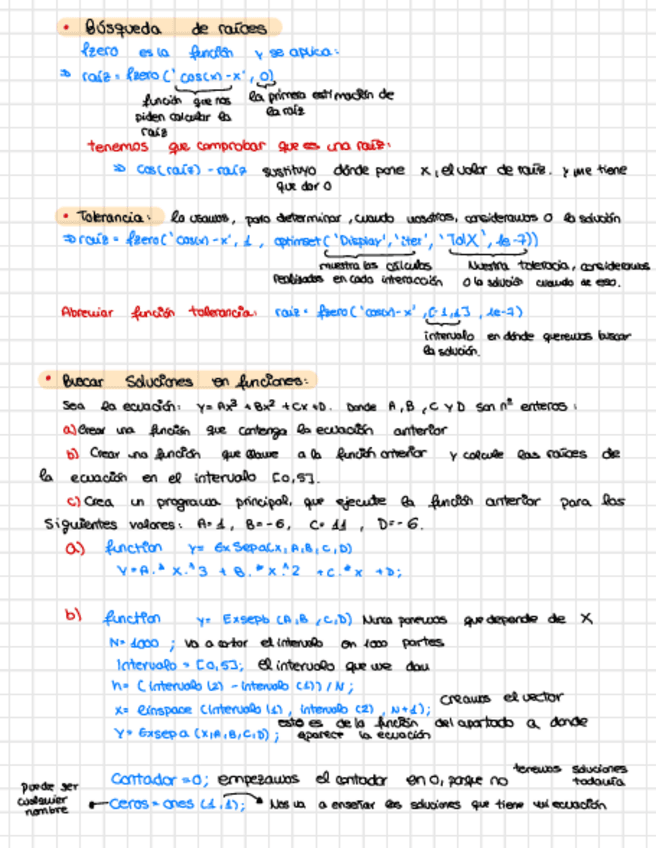 • Búsqueda de raíces
fzero es la función y se aplica:
⇒ raíz = fzero ('cos(x)-x', 0)
función que nos piden calcular la raíz
la primera estimación de la raíz
tenemos que comprobar que es una raíz:
⇒ cos(raíz) - raíz sustituyo dónde pone x, el valor de raíz. y me tiene
que dar 0
• Tolerancia: la usamos, para determinar, cuando nosotros, consideramos 0 la solución
⇒ raíz = fzero('cos(x)-x', 1, optimset('Display', 'iter', 'TolX', 1e-7))
muestra los cálculos
realizados en cada interacción
Nuestra tolerancia, consideramos
0 la solución cuando de eso.
Abreviar función tolerancia: raiz = fzero('cos(x)-x', [-1,1], 1e-7)
intervalo en dónde queremos buscar
la solución.
• Buscar soluciones en funciones:
Sea la ecuación: y=Ax³ + Bx² + Cx + D. Donde A, B, C y D son nº enteros:
a) Crear una función que contenga la ecuación anterior
b) Crear una función que llame a la función anterior y calcule las raíces de
la ecuación en el intervalo [0,5].
c) Crea un programa principal, que ejecute la función anterior para los
siguientes valores: A=1, B=-6, C=11, D=-6.
a) function y= ExSepa(x,A,B,C,D)
y=A.* x.^3 + B.* x.^2 + C.* x + D;
b) function y= Exsepb (A,B,C,D) Nunca ponemos que depende de X
N= 1000 ; va a cortar el intervalo en 1000 partes
Intervalo = [0,5]; el intervalo que me dan
h= (intervalo (2) - intervalo (1)) / N;
x= linspace (intervalo (1), intervalo (2), N+1); creamos el vector
y= Exsepa (x,A,B,C,D); esto es de la función del apartado a donde
aparece la ecuación
Contador = 0; empezamos el contador en 0, porque no tenemos soluciones
todavía
puede ser
cualquier
nombre
Ceros = ones (1,1); Nos va a enseñar las soluciones que tiene mi ecuación